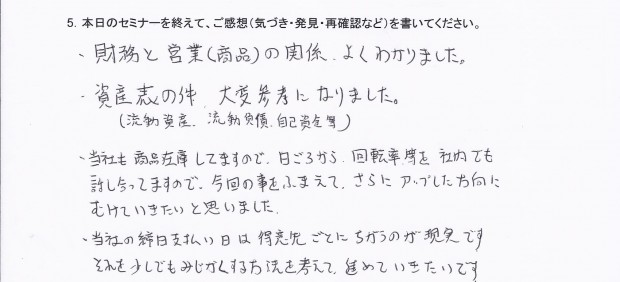 5. 本日のセミナーを終えて、ご感想（気づき・発見・再確認など）を書いてください。
、財務と営業（商品）の関係、よくわかりました。
・資産表の件、大変参考になりました。
（流動資産、流動負債、自己資金等）
・当社も商品在庫してますので、日ごろから、回転率等を社内でも
話し合ってますので、今回の事をふまえて、さらにアップした方向に
むけていきたいと思いました。
・当社の締日支払い日は得意先ごとにちがうのが現実です
それを少しでもみじかくする方法を考えて、進めていきたいです